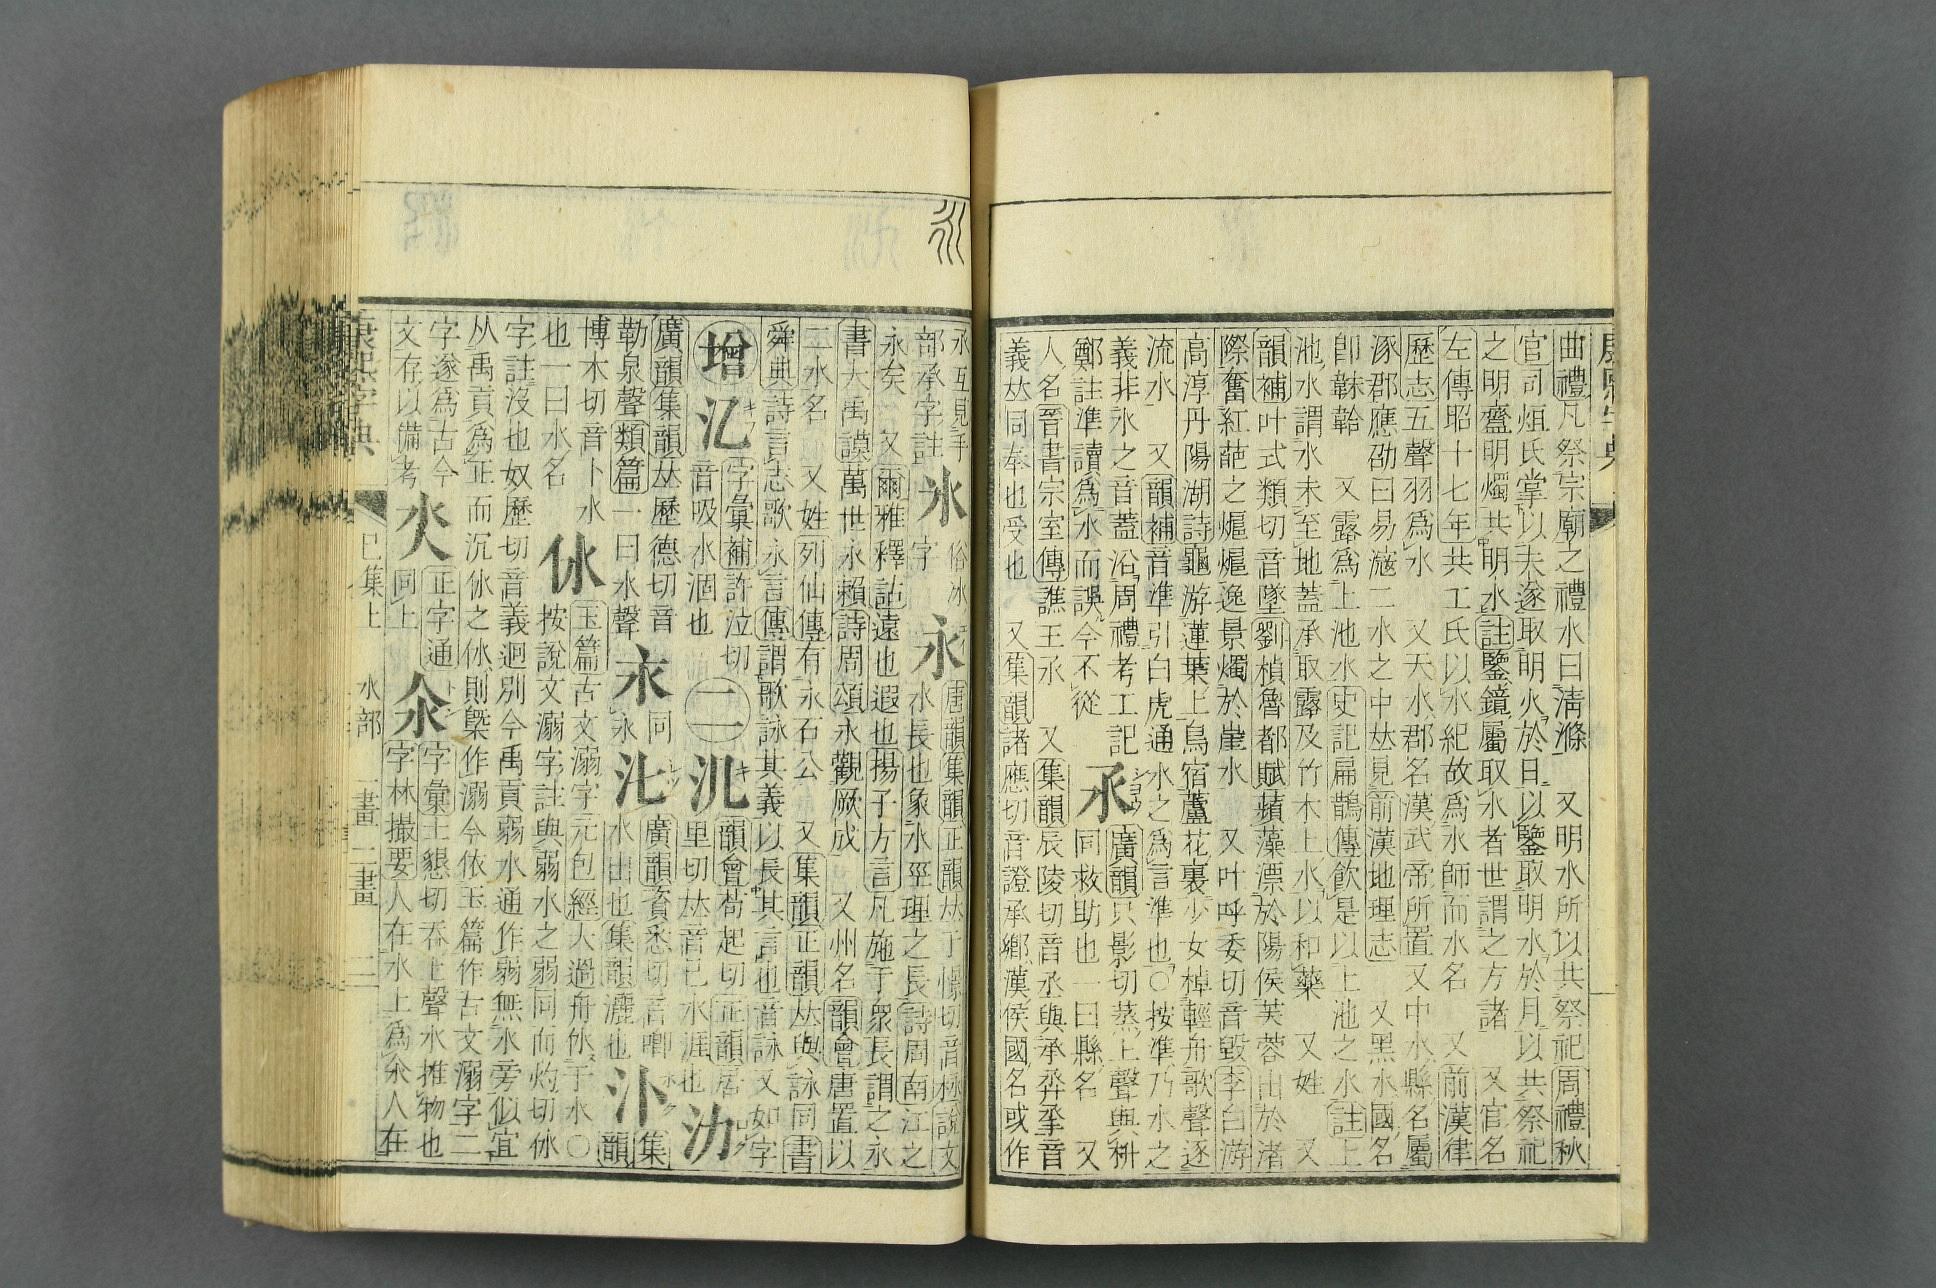 曲禮凡祭宗廟之禮水曰淸滌 又明水所以共祭祀周禮秋
官司烜氏掌以夫遂取明火於日以鑒取明水於月以共祭祀
之明齍明燭共明水註鑒鏡屬取水者世謂之方諸 又官名
左傳昭十七年共工氏以水紀故爲水師而水名 又前漢律
歷志五聲羽爲水 又天水郡名漢武帝所置又中水縣名屬
涿郡應劭曰易滱二水之中𠀤見前漢地理志 又黑水國名
卽靺鞨 又露爲上池水史記扁鵲傳飮是以上池之水註上
池水謂水未至地蓋承取露及竹木上水以和藥 又姓 又
韻補叶式類切音墜劉楨魯都賦蘋藻漂於陽侯芙蓉出於渚
際奮紅葩之熩熩逸景燭於崖水 又叶呼委切音毀李白游
高淳丹陽湖詩龜游蓮葉上鳥宿蘆花裏少女棹輕舟歌聲逐
流水 又韻補音準引白虎通水之爲言準也○按準乃水之
義非水之音蓋沿周禮考工記
鄭註準讀爲水而誤今不從
氶
廣韻只影切蒸上聲與拯
同救助也一曰縣名 又
人名晉書宗室傳譙王氶 又集韻辰陵切音丞與承丞𢩂音
義𠀤同奉也受也 又集韻諸應切音證承鄕漢侯國名或作
氶互見手
部承字註
氷
俗冰
字
永
唐韻集韻正韻𠀤于憬切音栐說文
水長也象水巠理之長詩周南江之
永矣 又爾雅釋詁遠也遐也揚子方言凡施于衆長謂之永
書大禹謨萬世永賴詩周頌永觀厥成 又州名韻會唐置以
二水名 又姓列仙傳有永石公 又集韻正韻𠀤與詠同書
舜典詩言志歌永言傳謂歌詠其義以長其言也音詠又如字
增
氾
字彙補許泣切
音吸水涸也
二
汎
韻會苟起切正韻居
里切𠀤音己水涯也
氻
廣韻集韻𠀤歷德切音
勒泉聲類篇一曰水聲
同
永
廣韻資悉切音喞
水出也集韻灑也
汴
集
韻
博木切音卜水
也一曰水名
㲻
玉篇古文溺字元包經大過舟㲻于水○
按說文溺字註與弱水之弱同而灼切㲻
字註沒也奴歷切音義迥別今禹貢弱水通作弱無水旁似宜
从禹貢爲正而沉㲻之㲻則槩作溺今依玉篇作古文溺字二
字遂爲古今
文存以備考
正字通
同上
汆
字彙土懇切吞上聲水推物也
字林撮要人在水上爲汆人在
康熙字典
巳集上 水部 一畫 二畫 三